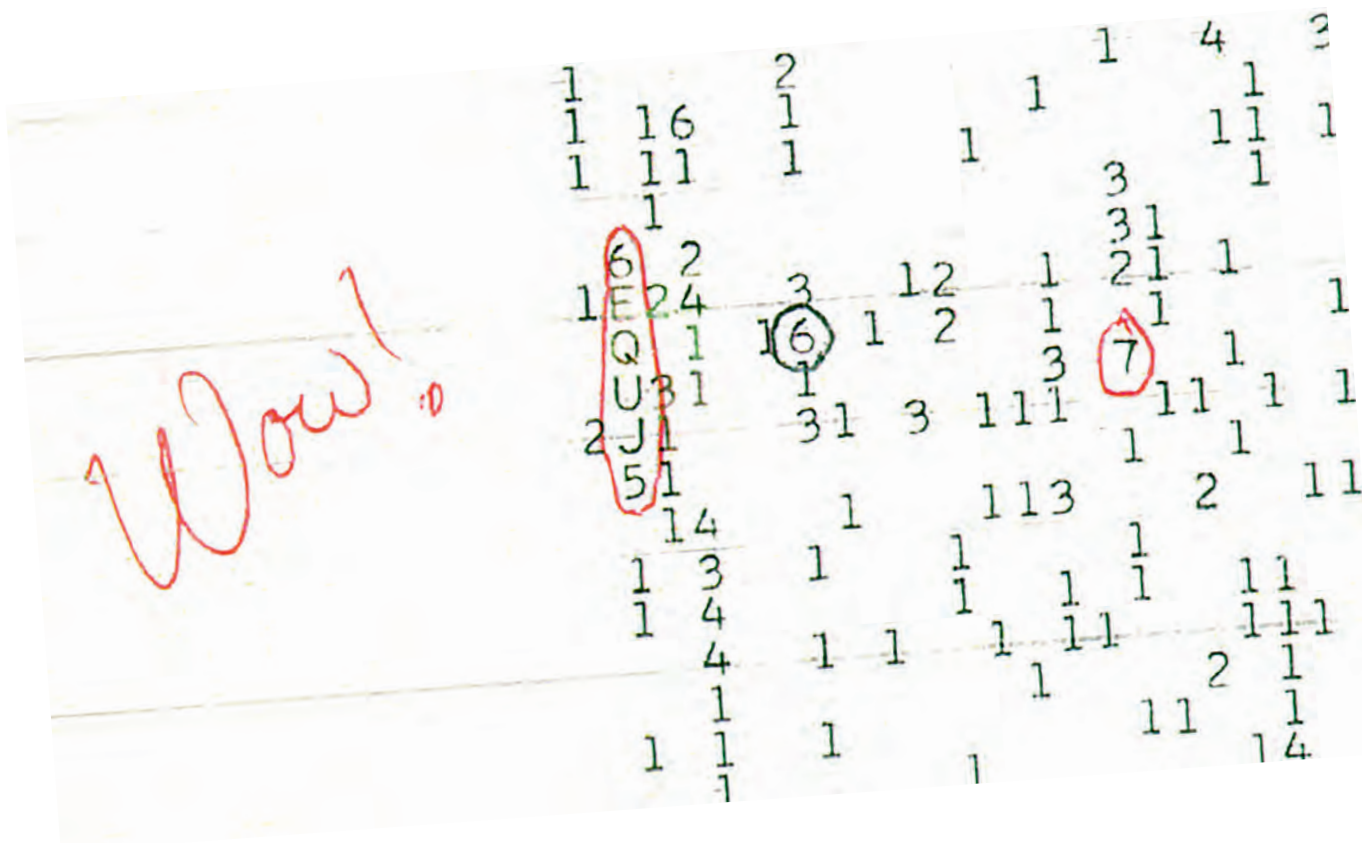 Wow!
1 2 1 4 3
1 16 1 1 1
1 11 1 1 11 1
1 3 1
6 2 31
1 E 24 3 12 1 21 1
Q 1 16 1 2 1 1 1
U31 1 3 7 1
2J1 31 3 111 11 1 1
51 1 1
14 1 113 2 11
1 3 1 1 1
1 4 1 1 1 11
4 1 1 1 11 111
1 1 2 1
1 1 1 11 1
1 1 14